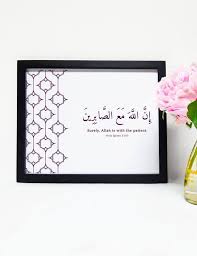 إِنَّ اللَّهَ مَعَ الصَّابِرِينَ
Surely, Allah is with the patient.